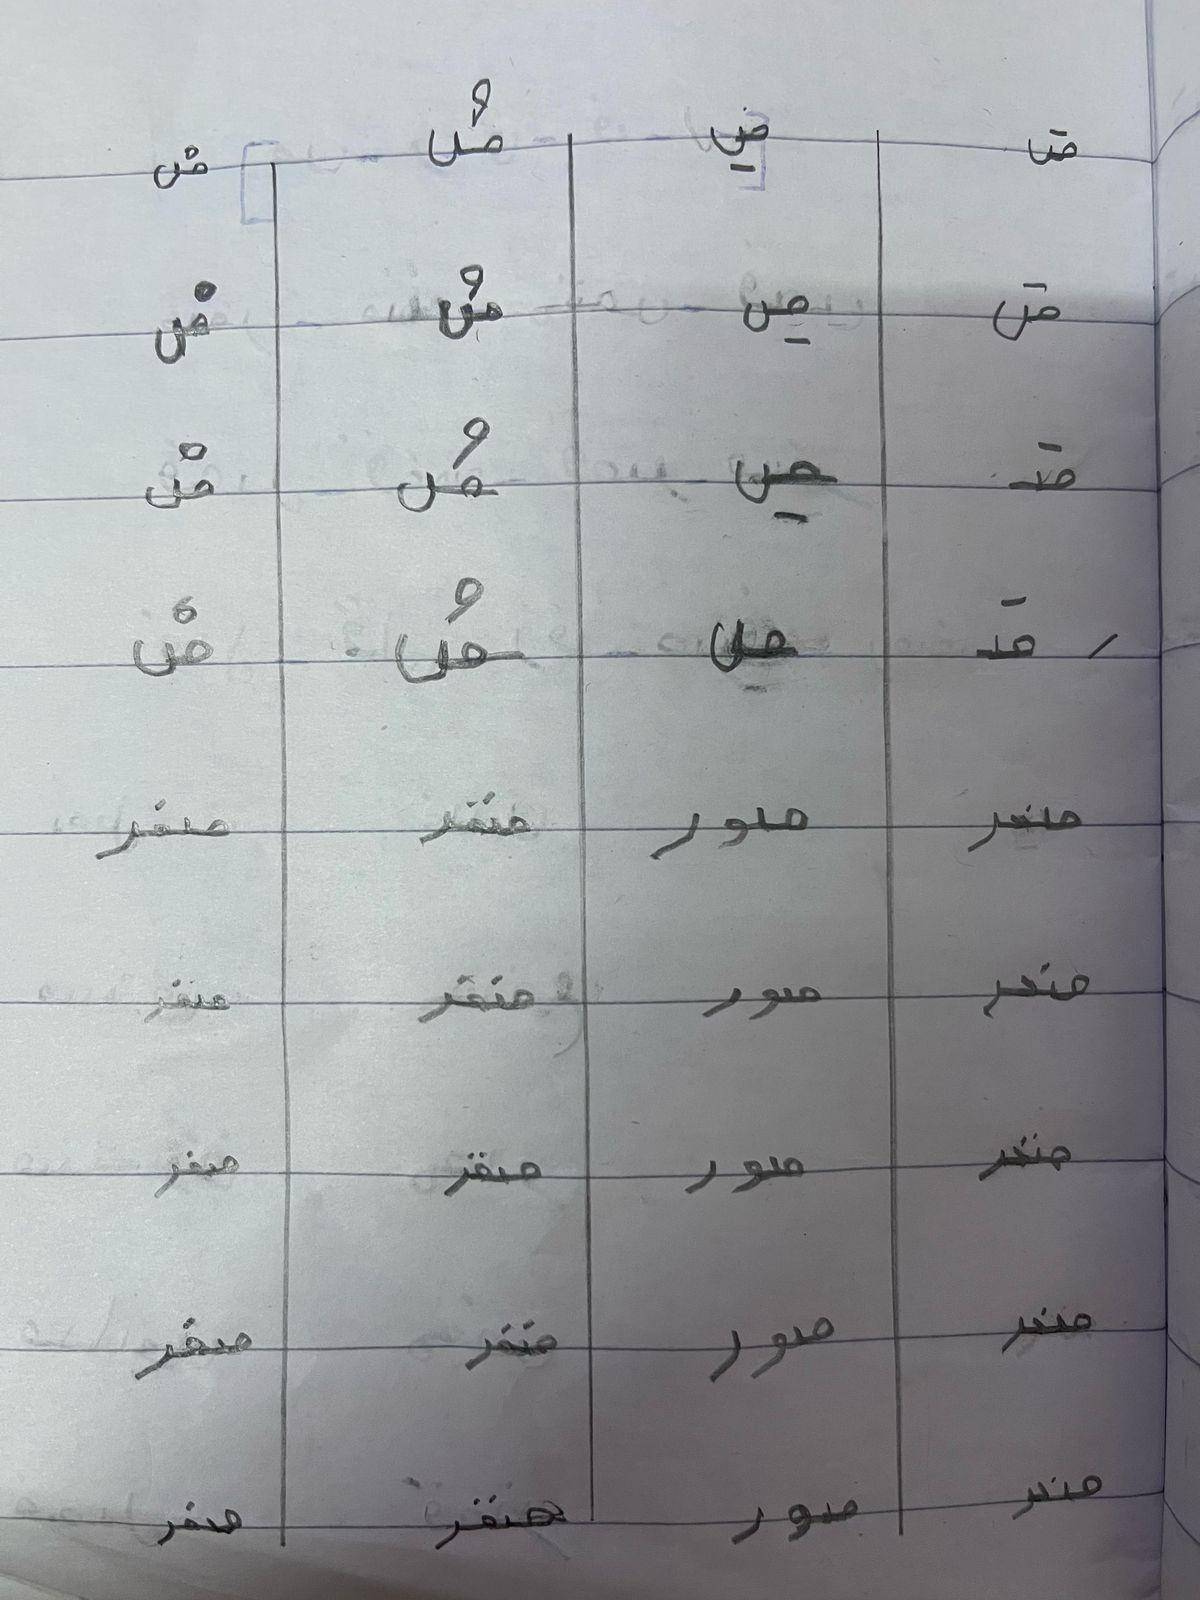 صَ صِ صُ صْ
صَ صِ صُ صْ
صَ صِ صُ صْ
صَ صِ صُ صْ
صغر صور صقر صفر
صغر صور صقر صفر
صغر صور صقر صفر
صغر صور صقر صفر
صغر صور صقر صفر